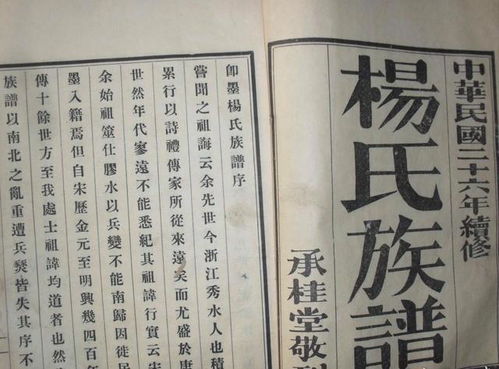 中華民國二十六年續修
楊氏族譜
承桂堂敬
即墨楊氏族譜序
嘗聞之祖誨云余先世今浙江秀水人也積
累行以詩禮傳家所從來遠矣而尤盛於
世然年代寥遠不能悉紀其祖諱行實云宋
余始祖筮仕膠水以兵變不能南歸因徙民
墨入籍焉但自宋歷金元至明興幾四百年
傳十餘世方至我處士祖諱均道者也然
族譜以南北之亂重遭兵燹皆失其序不